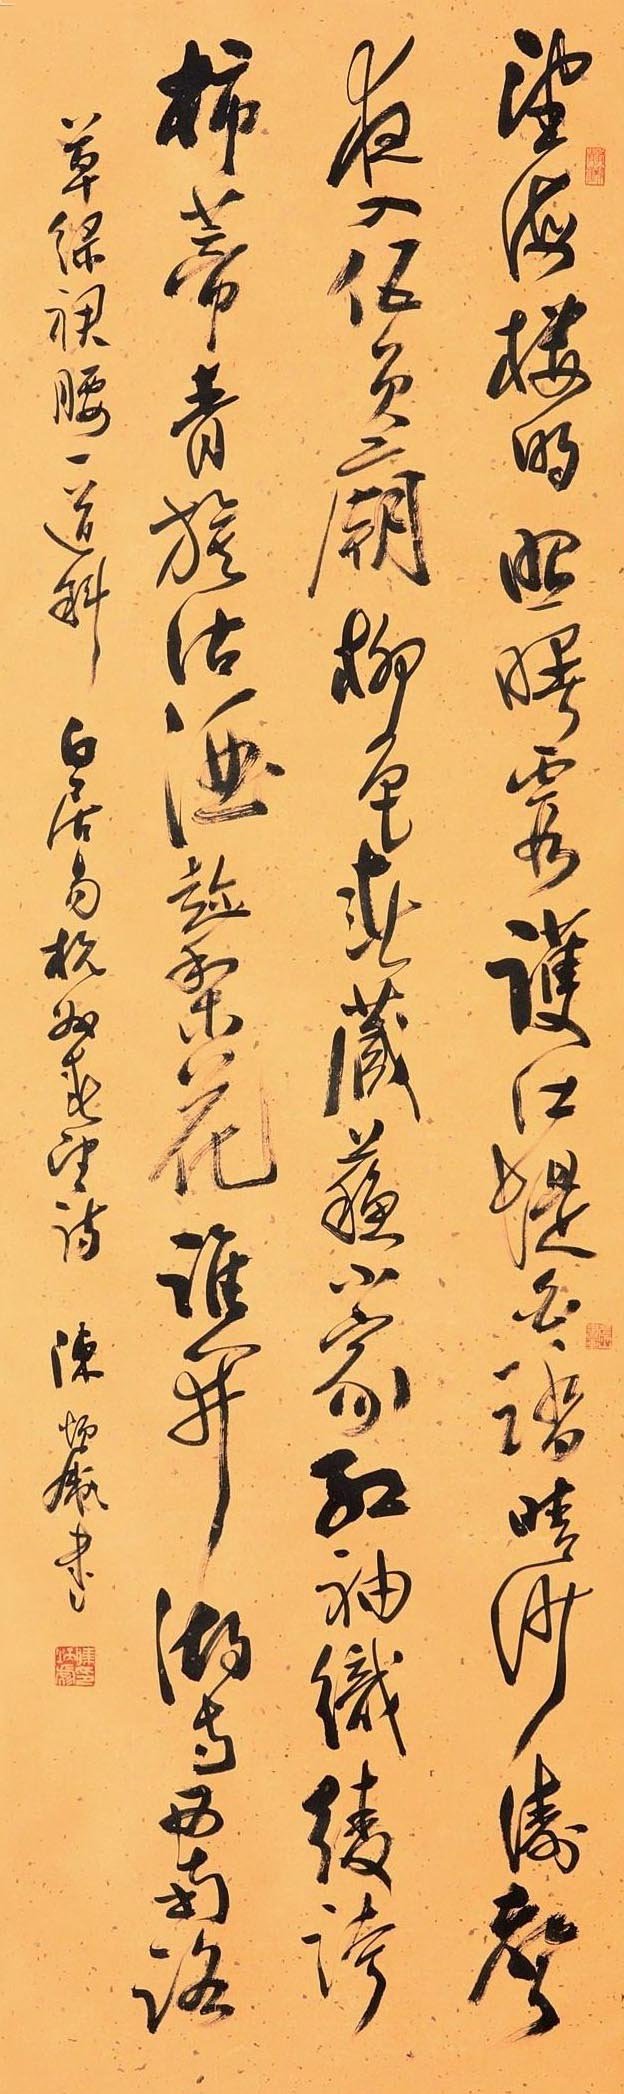 望海樓明照曙霞護江堤白踏晴沙濤聲
夜入伍員廟柳色春藏蘇小家紅袖織綾誇
柿蒂青旗沽酒趁梨花誰開湖寺西南路
草綠裙腰一道斜 白居易杭州春望詩 陳書